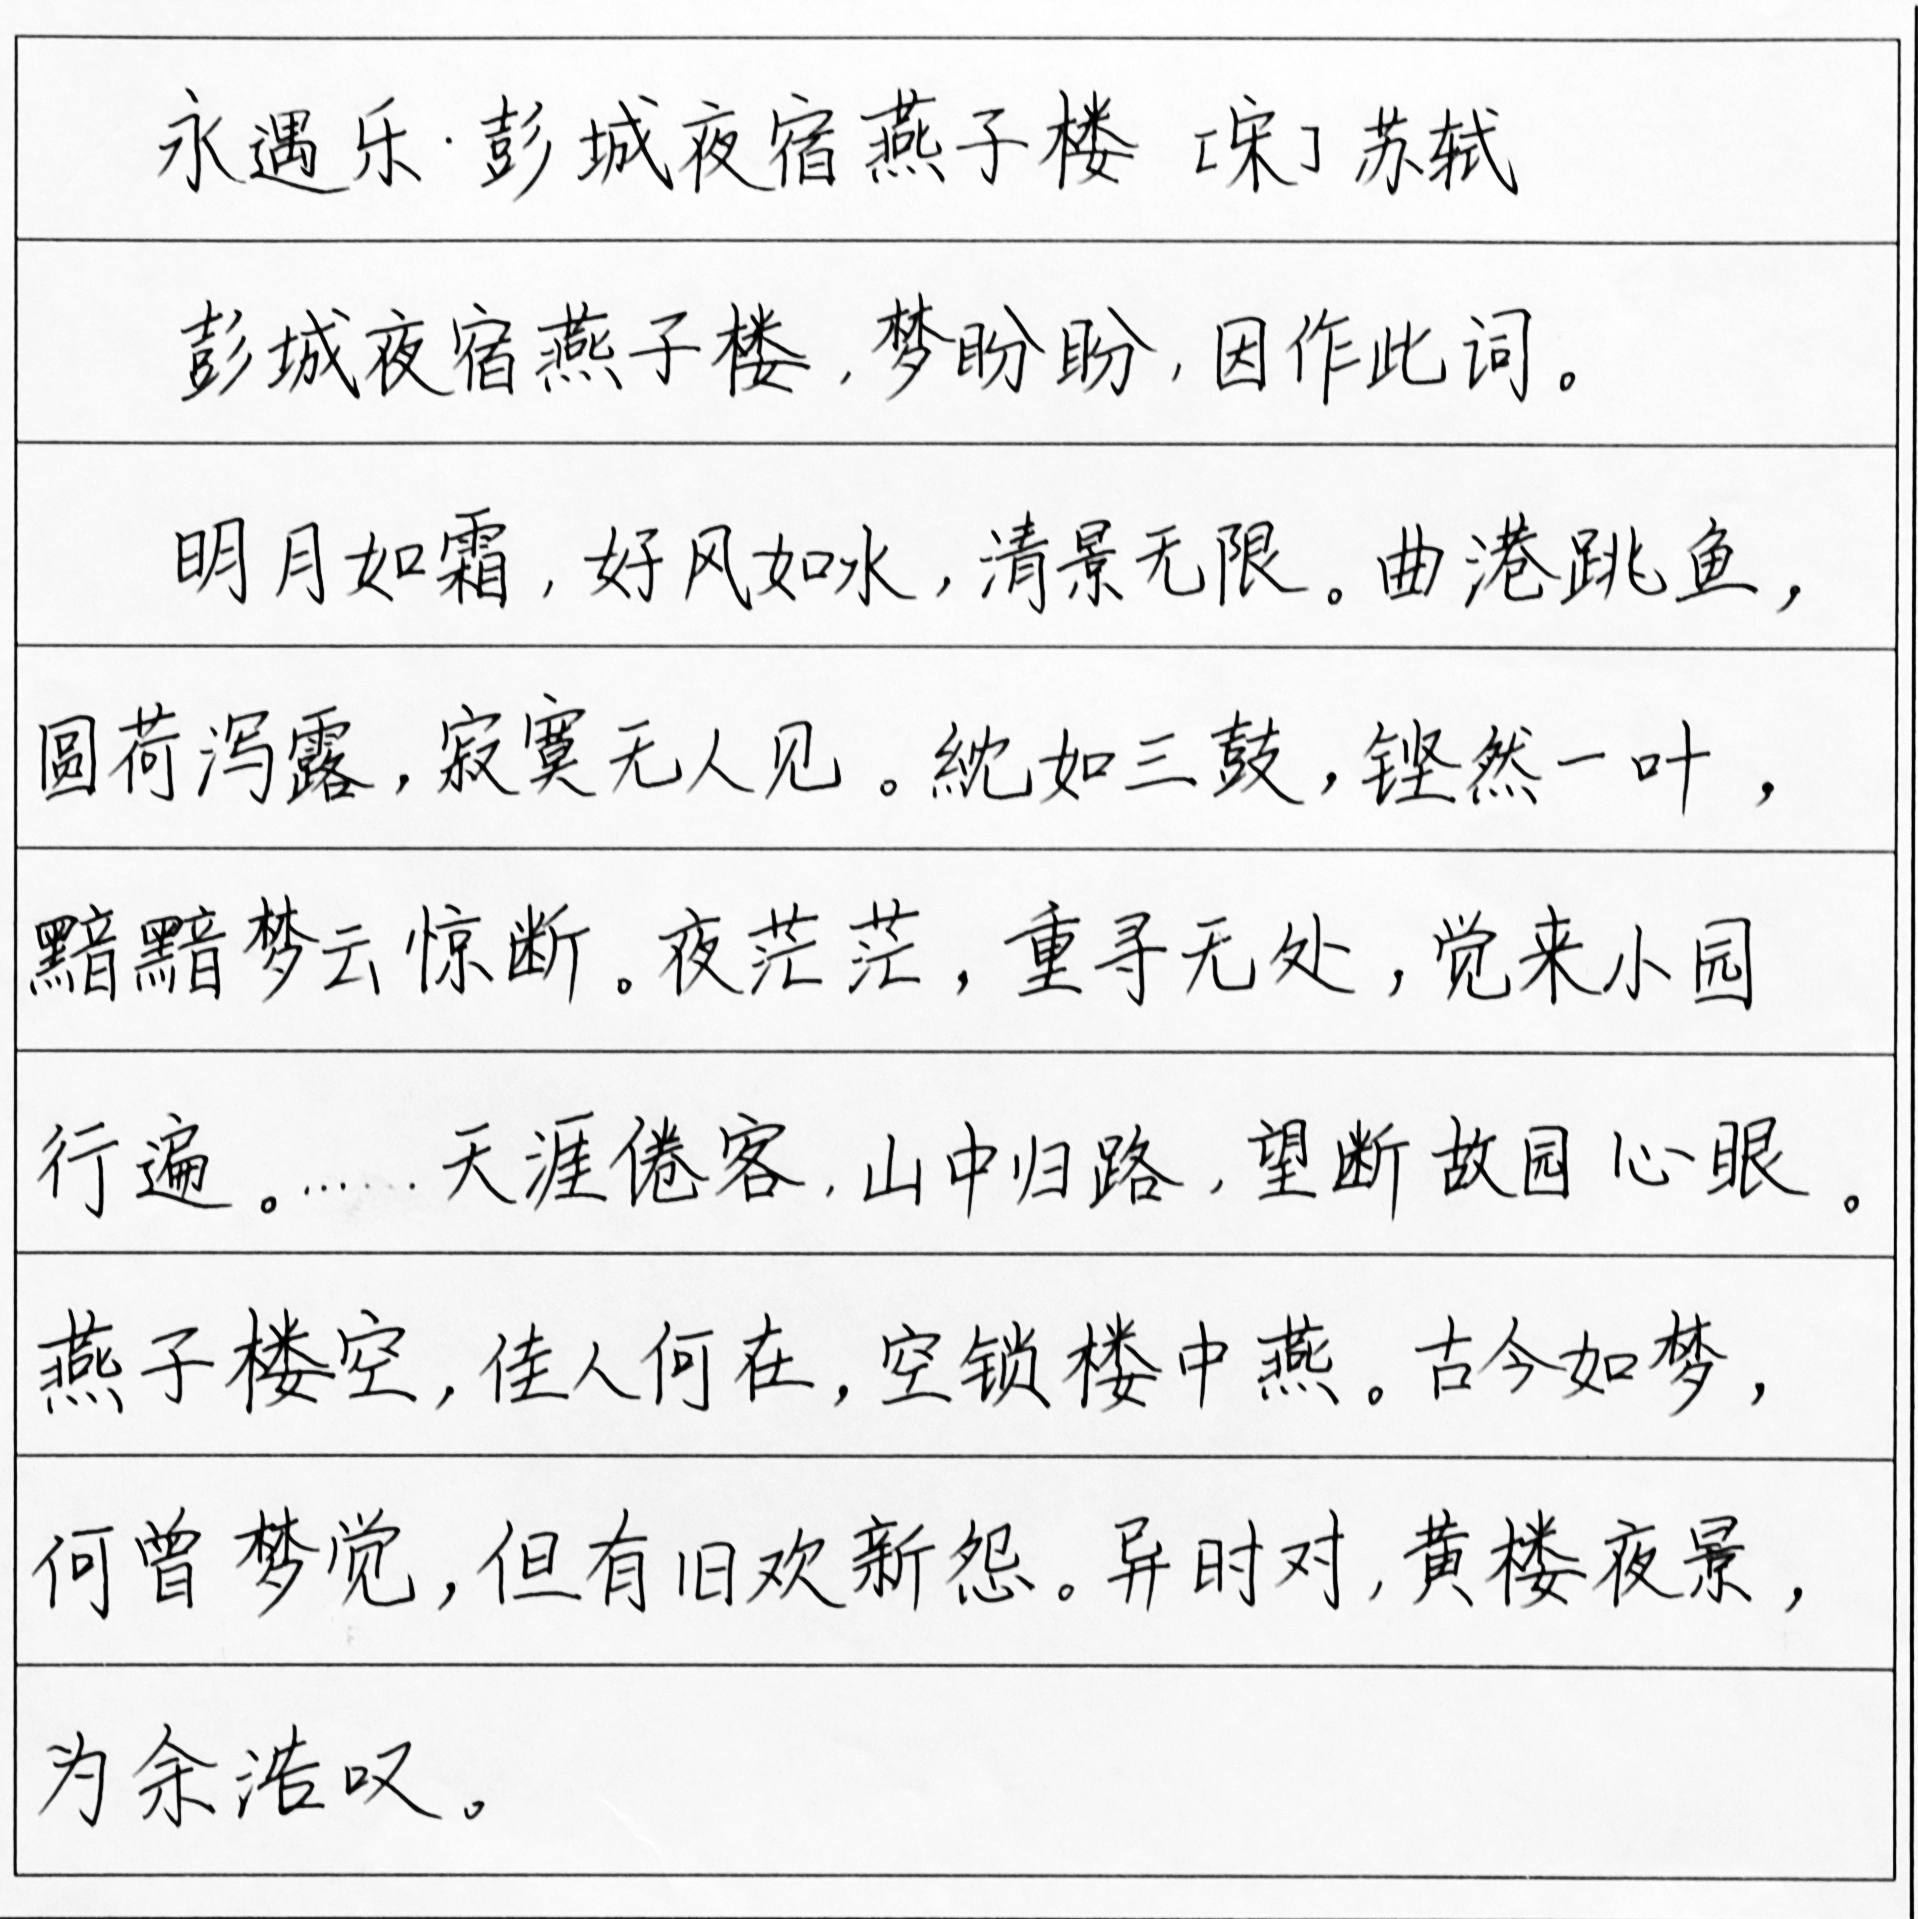 永遇乐·彭城夜宿燕子楼 [宋] 苏轼
彭城夜宿燕子楼，梦盼盼，因作此词。
明月如霜，好风如水，清景无限。曲港跳鱼，
圆荷泻露，寂寞无人见。紞如三鼓，铿然一叶，
黯黯梦云惊断。夜茫茫，重寻无处，觉来小园
行遍。……天涯倦客，山中归路，望断故园心眼。
燕子楼空，佳人何在，空锁楼中燕。古今如梦，
何曾梦觉，但有旧欢新怨。异时对，黄楼夜景，
为余浩叹。